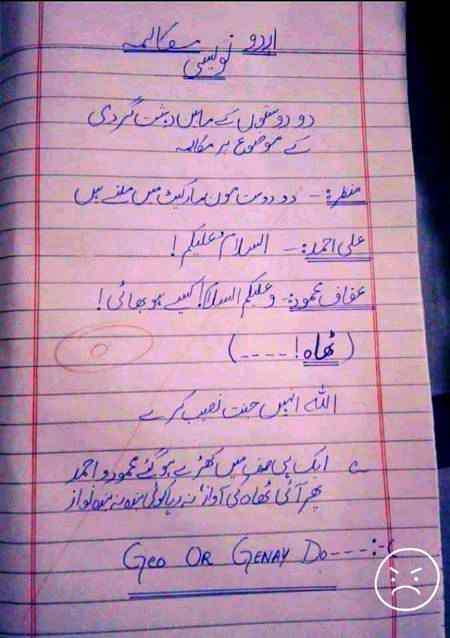 اردو مکالمہ
نویسی
دو دوستوں کے مابین دہشت گردی
کے موضوع پر مکالمہ
منظر:- دو دوست مون مارکیٹ میں ملتے ہیں
علی احمد:- السلام علیکم!
عفاف محمود:- وعلیکم السلام! کیسے ہو بھائی!
(ٹھاہ! ----)
0
اللہ انہیں جنت نصیب کرے
ے ایک ہی صف میں کھڑے ہو گئے محمود و احمد
پھر آئی ٹھاہ کی آواز، نہ رہا کوئی بندہ نہ بندہ نواز
GEO OR GENAY DO---:-